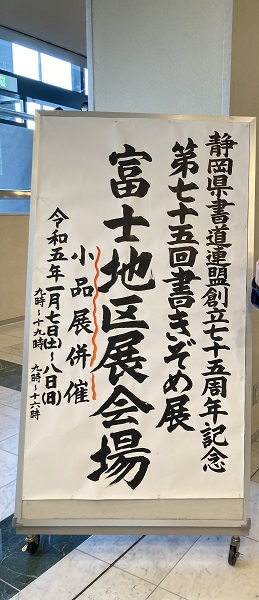 静岡県書道連盟創立七十五周年記念
第七十五回書きぞめ展
富士地区展会場
小品展併催
令和五年一月七日(土)〜八日(日)
九時〜十九時
九時〜十六時